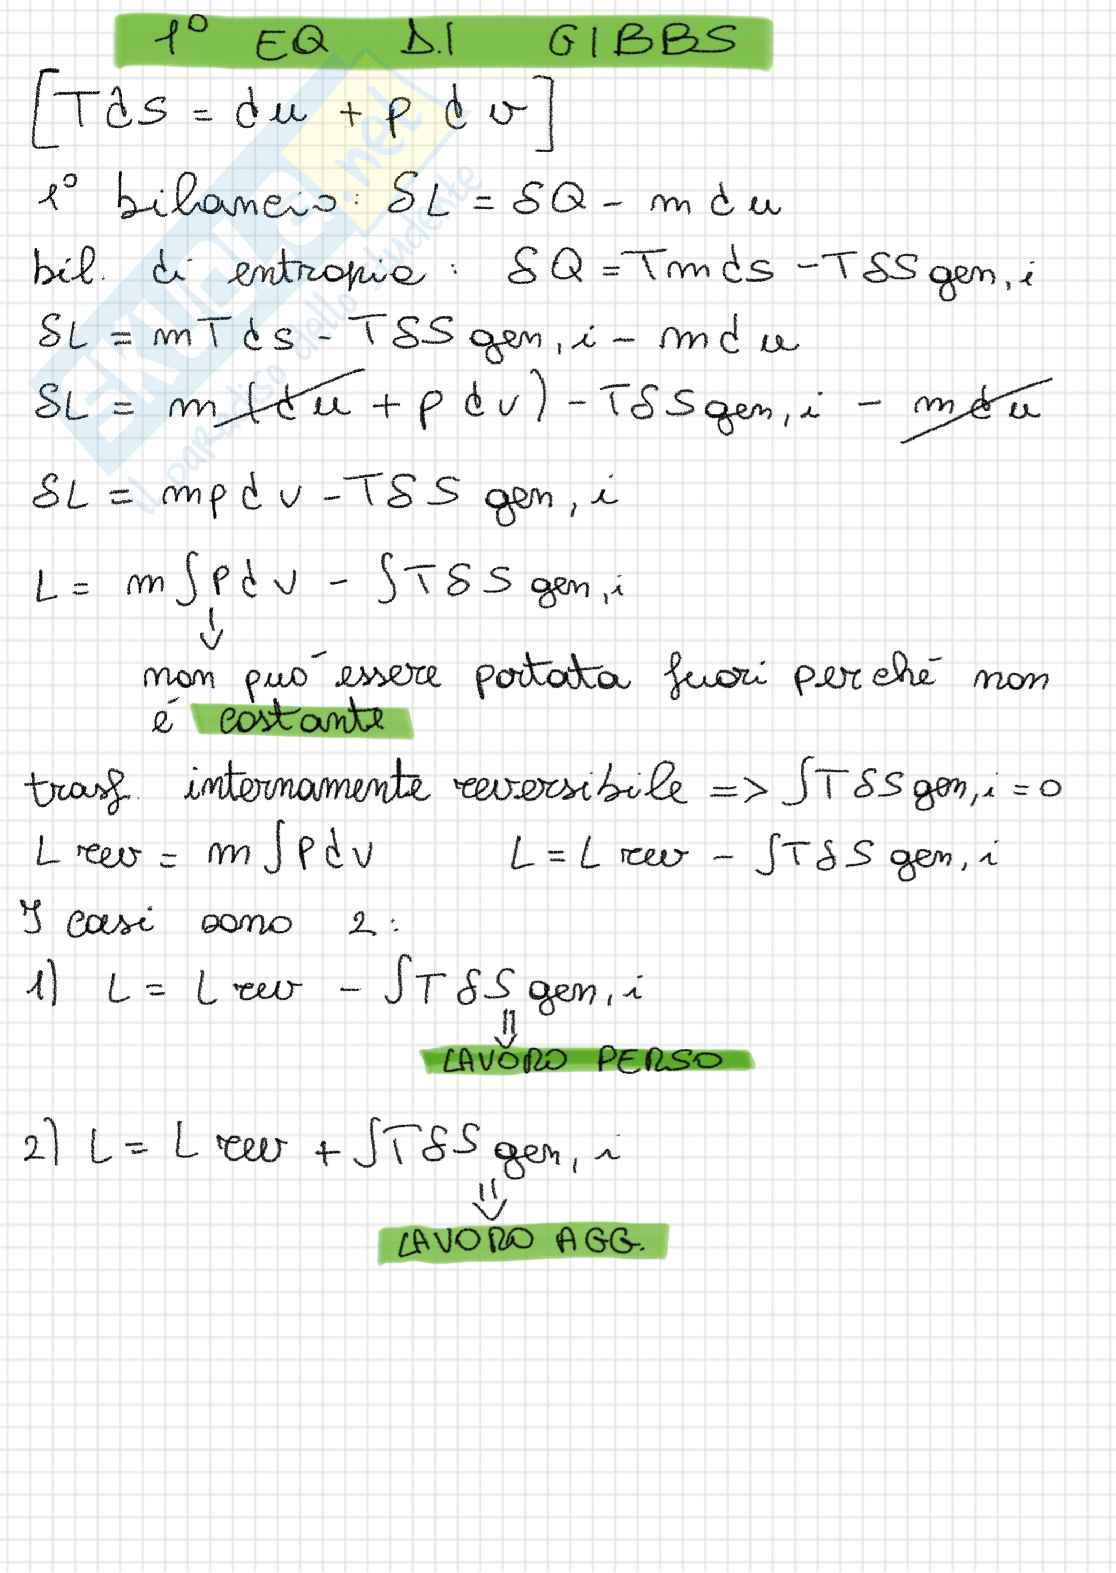 1° EQ DI GIBBS
[Tds = du + p dv]
1° bilancio: δL = δQ - m du
bil. di entropia: δQ = Tmds - TδS gen,i
δL = mTds - TδS gen,i - mdu
δL = m(du + pdv) - TδSgen,i - mdu
δL = mpdv - TδS gen,i
L = m∫pdv - ∫TδS gen,i
↓
non può essere portata fuori perché non
é costante
trasf. internamente reversibile => ∫TδSgen,i = 0
Lrev = m∫pdv L = Lrev - ∫TδS gen,i
I casi sono 2:
1) L = Lrev - ∫TδS gen,i
⇓
LAVORO PERSO
2) L = Lrev + ∫TδS gen,i
⇓
LAVORO AGG.
SKUOLA.net
il paradiso dello studente